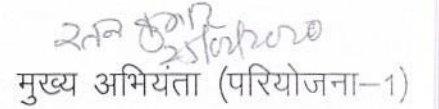 रतन कुमार
25/02/2020
मुख्य अभियंता (परियोजना–1)